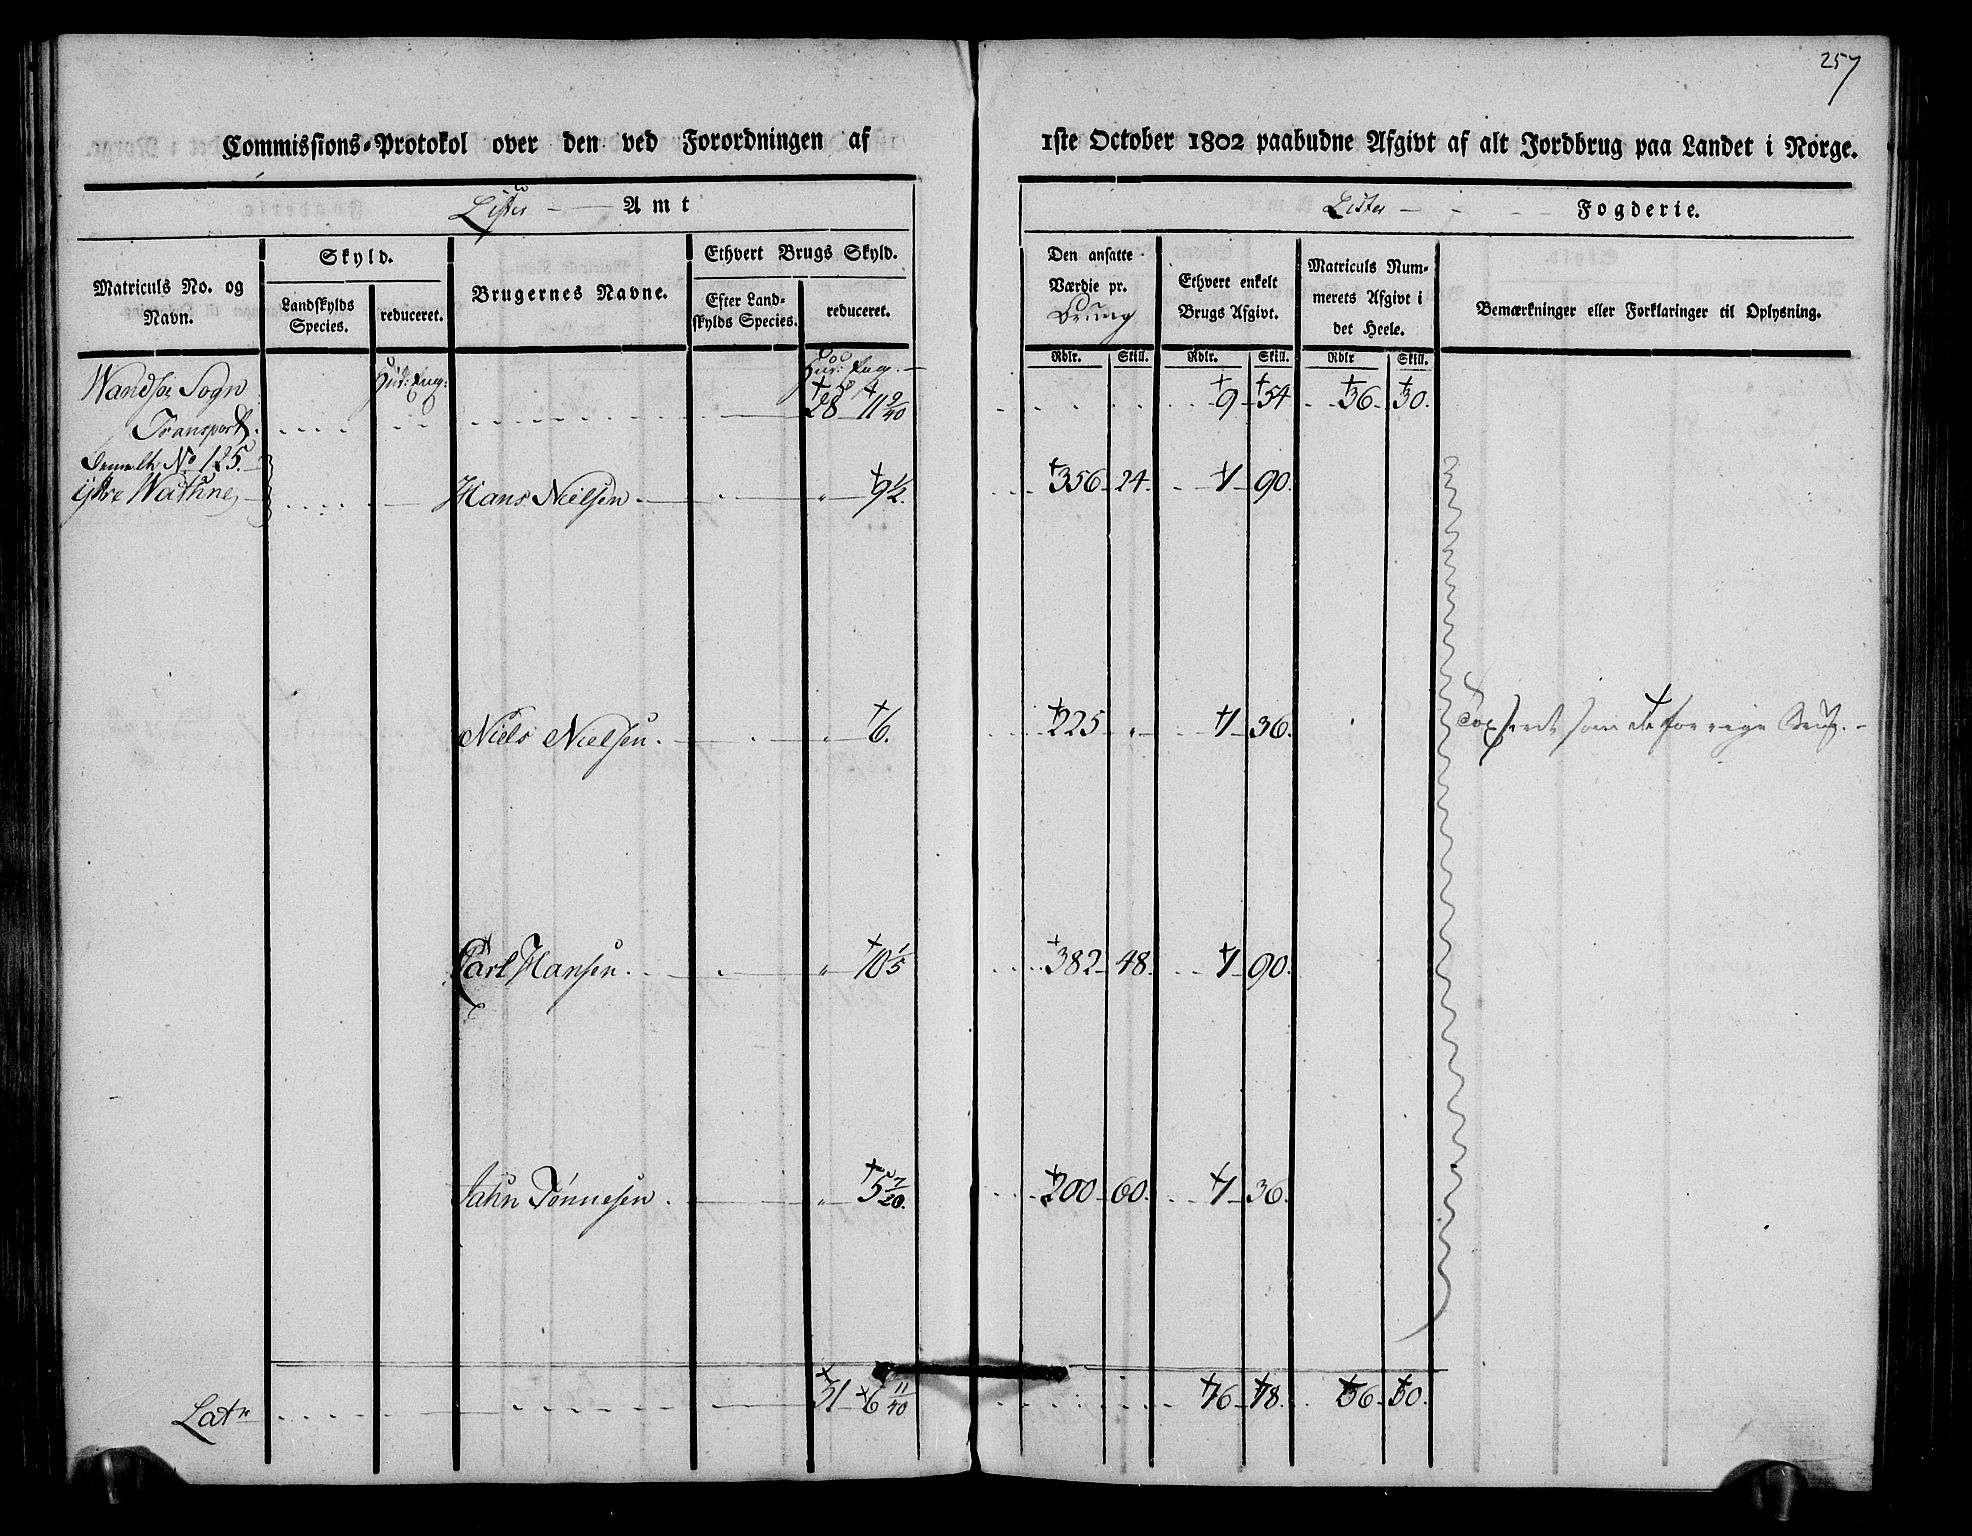 257
Commissions-Protokol over den ved Forordningen af 1ste October 1802 paabudne Afgivt af alt Jordbrug paa Landet i Norge.
Lister Amt
Lister Fogderie.
Matriculs No. og Navn.
Skyld.
Landskylds Species.
reduceret.
Brugernes Navne.
Ethvert Brugs Skyld.
Efter Landskylds Species.
reduceret.
Den ansatte Værdie pr.
Ethvert enkelt Brugs Afgivt.
Matriculs Nummerets Afgivt i det Heele.
Bemærkninger eller Forklaringer til Oplysning.
Rdlr. Skill. Rdlr. Skill. Rdlr Skill.
Wandsøe Sogn
Transport 28 11 9/40 9 54 36 30.
No 125.
ÿtre Wathne, Hans Nielsen 9 1/2. 356 24 1 90.
Niels Nielsen. 6. 225 „ 1 36. som det forrige Brug.
Carl Hansen. „ 10 1/5 382 48. 1 90.
Jahn Tönnesen. „ 5 7/20. 200 60. 1 36.
Latr 31 6 11/40 16 18. 36 30.